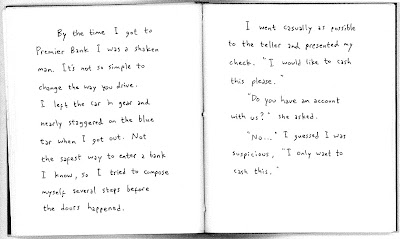 By the time I got to
Premier Bank I was a shaken
man. It's not so simple to
change the way you drive.
I left the car in gear and
nearly staggered on the blue
tar when I got out. Not
the safest way to enter a bank
I know, so I tried to compose
myself several steps before
the doors happened.
I went casually as possible
to the teller and presented my
check. "I would like to cash
this please."
"Do you have an account
with us?" she asked.
"No..." I guessed I was
suspicious. "I only want to
cash this."